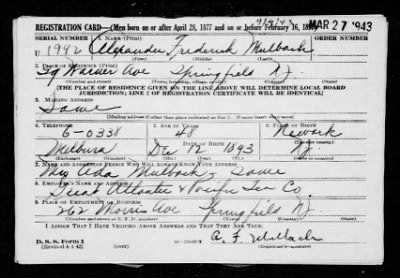 REGISTRATION CARD—(Men born on or after April 28, 1877 and on or before February 16, 1897)
MAR 27 1943
SERIAL NUMBER 1. NAME (Print)
U 1992 Alexander Frederick Mulbach
(First) (Middle) (Last)
2. PLACE OF RESIDENCE (Print)
Warner Ave Springfield N.J.
(Number and street) (Town, township, village, or city) (County) (State)
[THE PLACE OF RESIDENCE GIVEN ON THE LINE ABOVE WILL DETERMINE LOCAL BOARD
JURISDICTION; LINE 2 OF REGISTRATION CERTIFICATE WILL BE IDENTICAL]
3. MAILING ADDRESS
Same
[Mailing address if other than place indicated on line 2. If same insert word same]
4. TELEPHONE 5. AGE IN YEARS 6. PLACE OF BIRTH
6-0338 48 Newark
DATE OF BIRTH (Town or county)
Milburn Dec 12 1893 N.J.
(Exchange) (Number) (Mo.) (Day) (Yr.) (State or country)
7. NAME AND ADDRESS OF PERSON WHO WILL ALWAYS KNOW YOUR ADDRESS
Mrs Ada Mulbach, Same
8. EMPLOYER'S NAME AND ADDRESS
Great Atlantic & Pacific Tea Co.
9. PLACE OF EMPLOYMENT OR BUSINESS
262 Morris Ave Springfield N.J.
(Number and street or R. F. D. number) (Town) (County) (State)
I AFFIRM THAT I HAVE VERIFIED ABOVE ANSWERS AND THAT THEY ARE TRUE.
D. S. S. Form 1 A. F. Mulbach
(Revised 4-1-42) (over) (Registrant's signature)